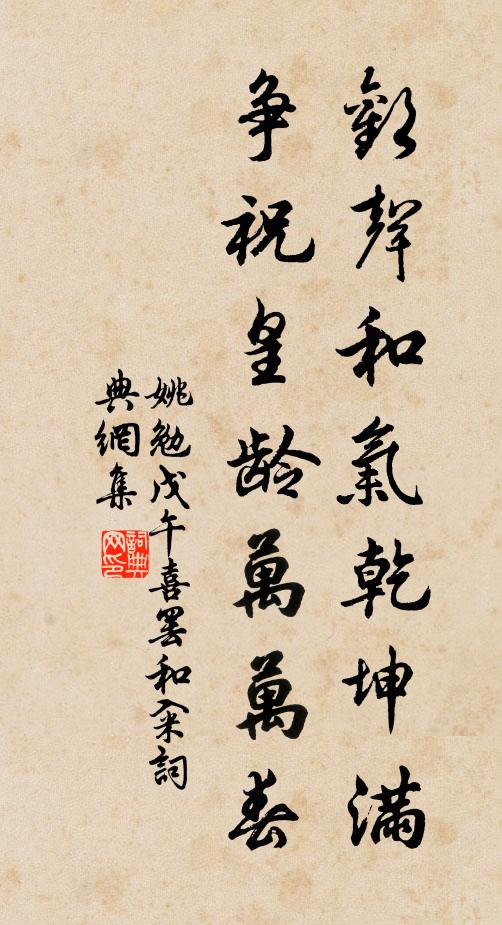 歡聲和氣乾坤滿
爭祝皇齡萬萬春
姚勉戊午喜罷和籴詞
典網集
詞典
网印